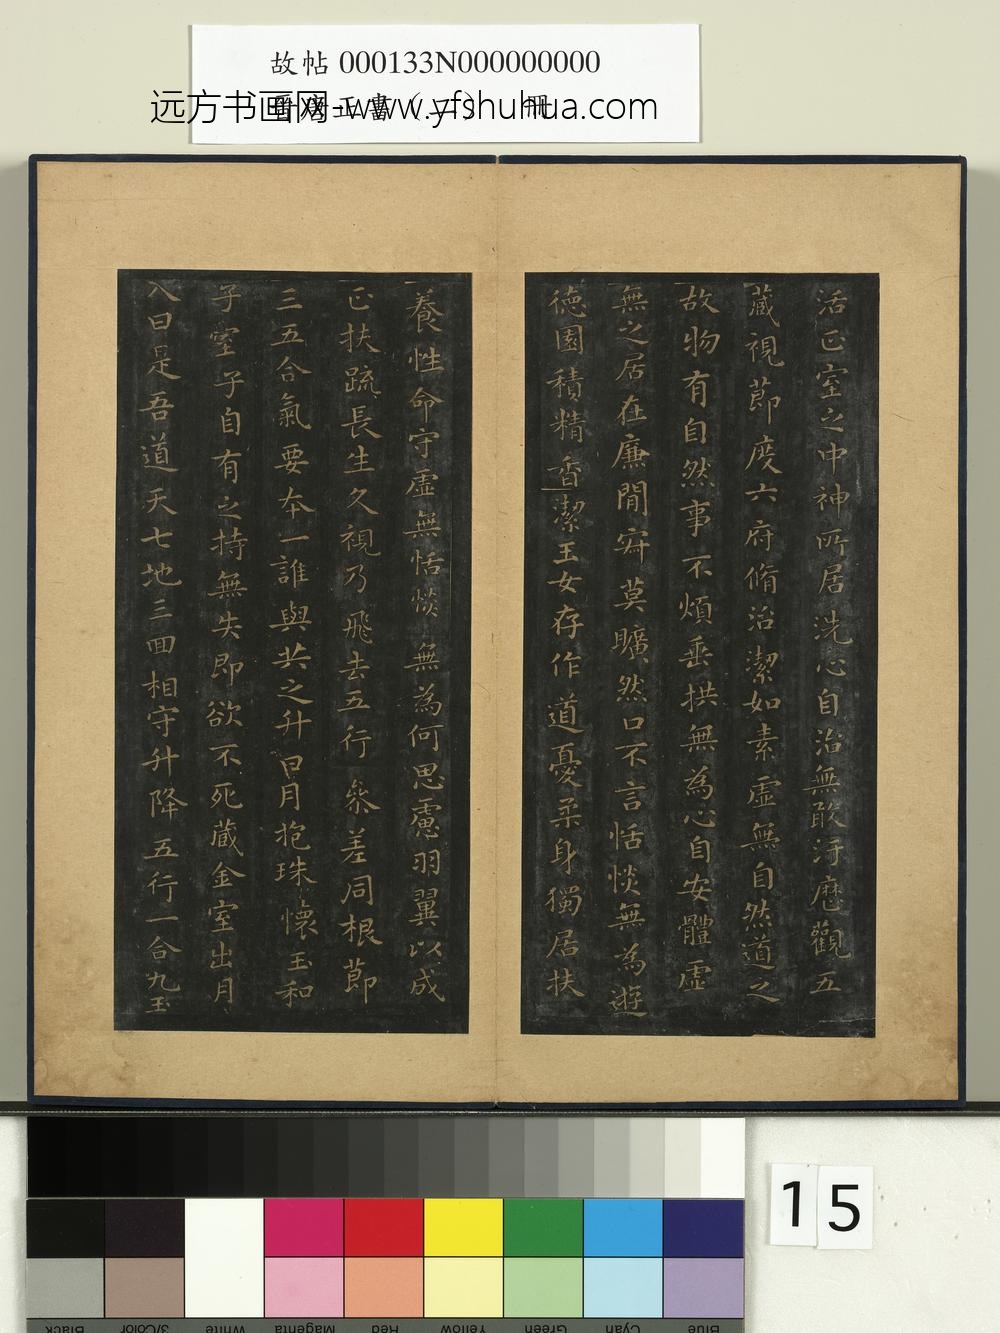 故帖 000133N000000000
远方书画网-www.yfshuhua.com
活正室之中神所居洗心自治無敢洿歷觀五
藏視節度六府脩治潔如素虛無自然道之
故物有自然事不煩垂拱無為心自安體虛
無之居在廉間寂莫曠然口不言恬惔無為遊
德園積精香潔玉女存作道憂柔身獨居扶
養性命守虛無恬惔無為何思慮羽翼以成
正扶疏長生久視乃飛去五行參差同根節
三五合氣要本一誰與共之升日月抱珠懷玉和
子室子自有之持無失即欲不死藏金室出月
入日是吾道天七地三回相守升降五行一合九玉
15
Black
3/Color
White
Magenta
Red
Yellow
Green
Cyan
Blue